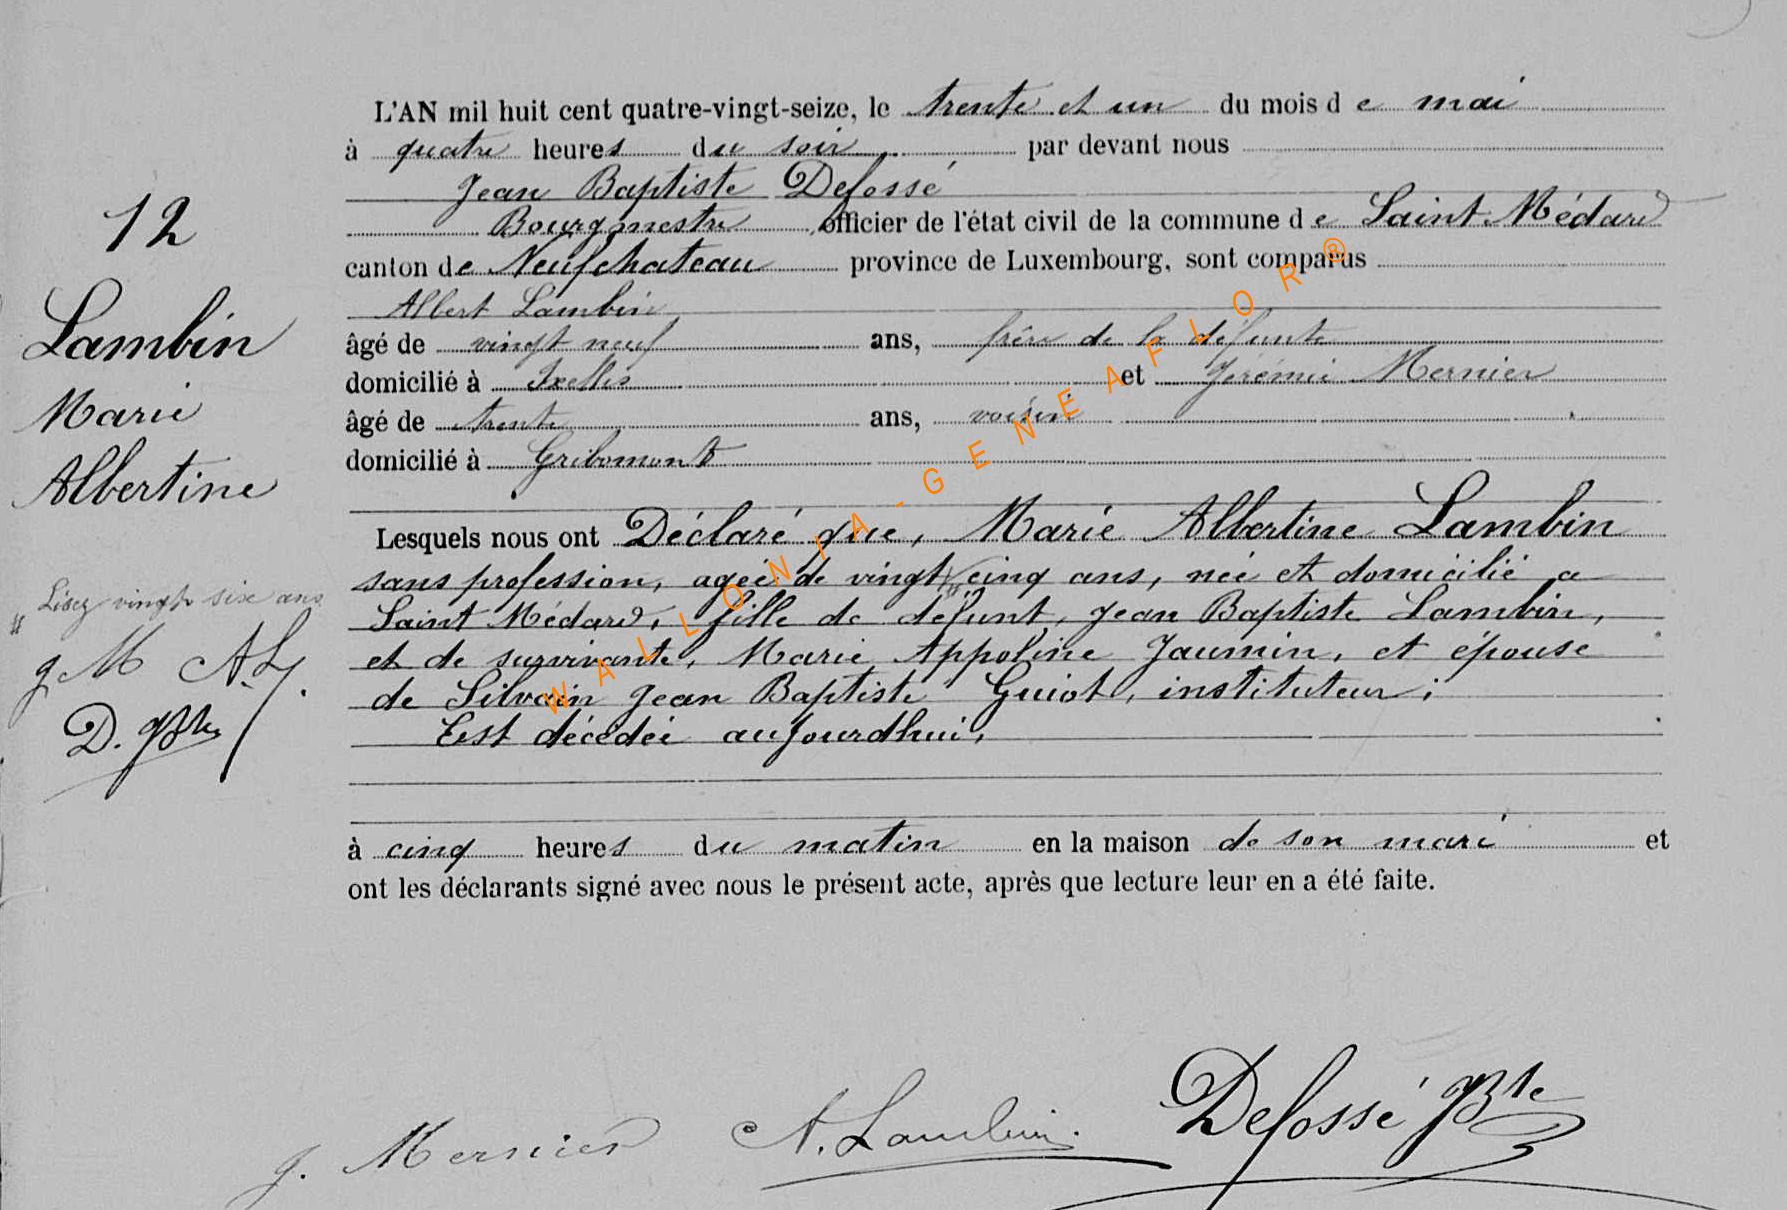 12
Lambin
Marie
Albertine
" Lisez vingt six ans
J M A. L.
D. JBte
L'AN mil huit cent quatre-vingt-seize, le trente et un du mois de mai
à quatre heures du soir par devant nous
Jean Baptiste Defossé
Bourgmestre officier de l'état civil de la commune de Saint Médard
canton de Neufchateau province de Luxembourg, sont comparus
Albert Lambin
âgé de vingt neuf ans, frère de la défunte
domicilié à Ixelles et Jérémie Mernier
âgé de trente ans, voisin
domicilié à Gribomont
Lesquels nous ont Déclaré que, Marie Albertine Lambin
sans profession, ageé de vingt cinq ans, neé et domicilié a
Saint Médard, fille de défunt, Jean Baptiste Lambin,
et de survivante, Marie Appoline Jaumin, et épouse
de Silvain Jean Baptiste Guiot, instituteur;
Est décédeé aujourdhui,
à cinq heures du matin en la maison de son mari et
ont les déclarants signé avec nous le présent acte, après que lecture leur en a été faite.
J. Mernier A. Lambin. Defossé JBte
WALLONIA-GENEAFLOR®